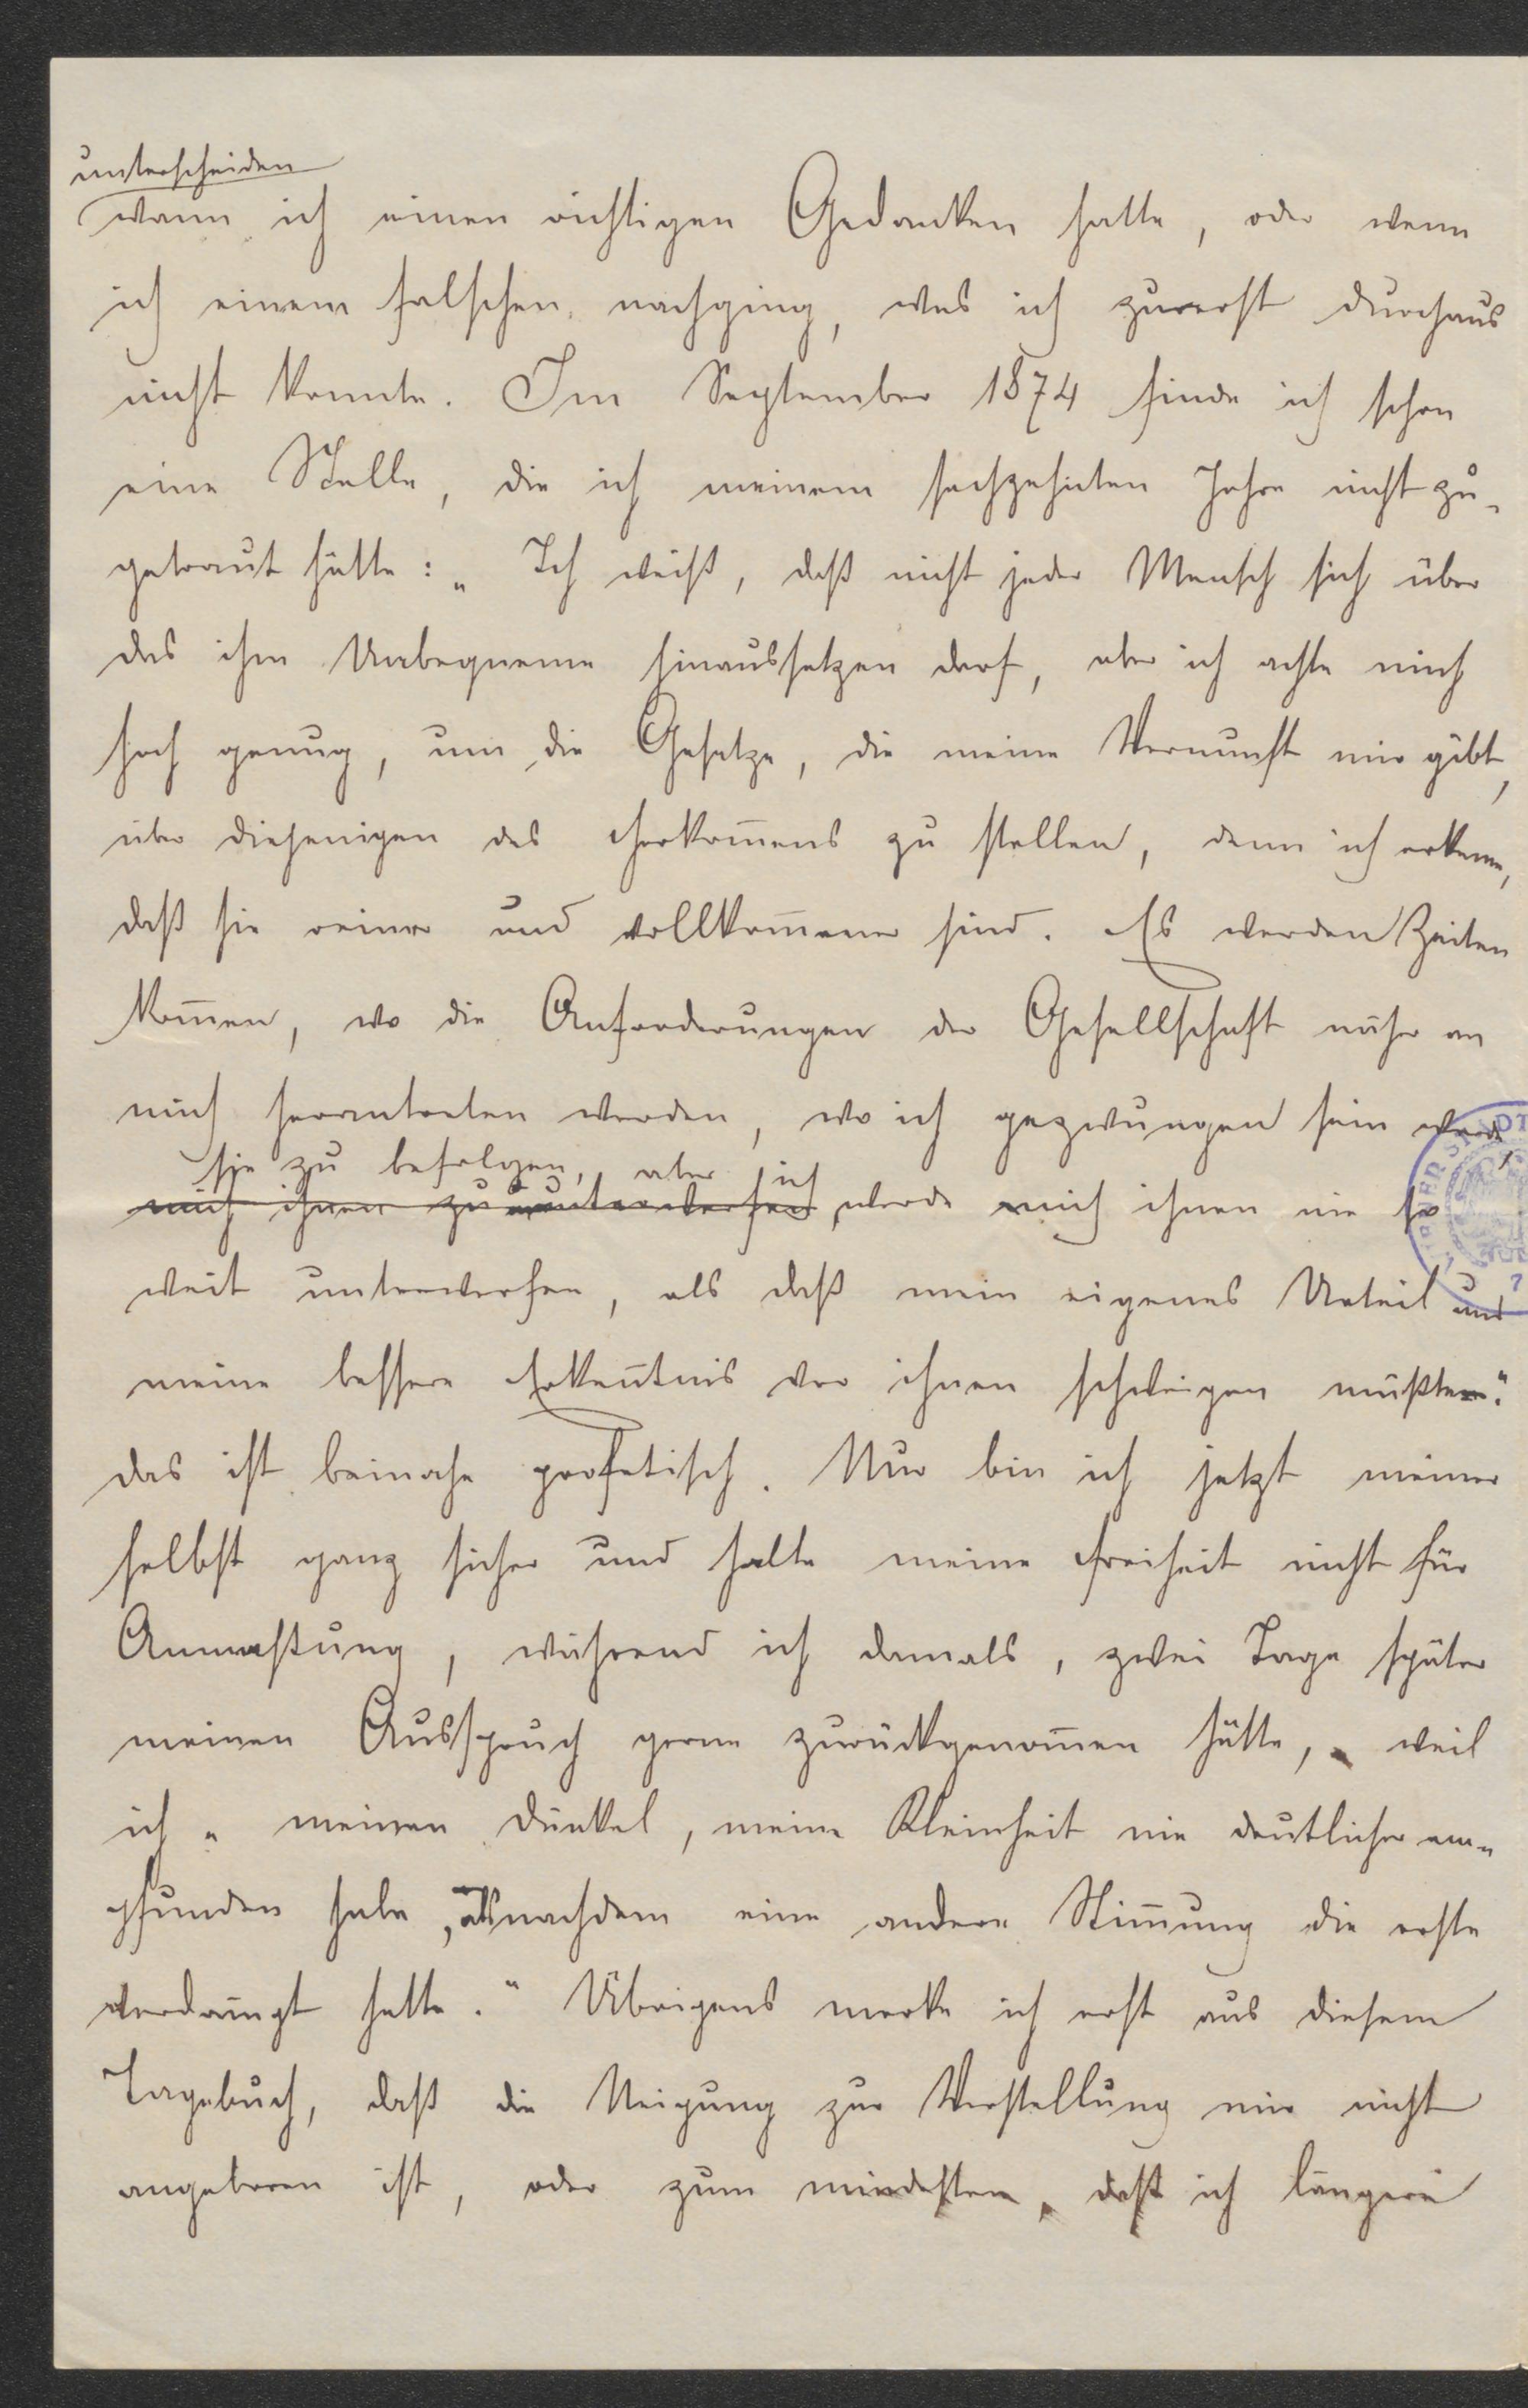 unterscheiden
wann ich einen richtigen Gedanken hatte, oder wenn
ich einem falschen nachging, was ich zuerst durchaus
nicht konnte. Im September 1874 finde ich schon
eine Stelle, die ich meinem sechzehnten Jahre nicht zu-
getraut hätte: „Ich weiß, daß nicht jeder Mensch sich über
das ihm Unbequeme hinaussetzen darf, aber ich achte mich
hoch genug, um die Gesetze, die meine Vernunft mir gibt,
über diejenigen des Herkom̄ens zu stellen, denn ich erkenne,
daß sie reiner und vollkom̄ener sind. Es werden Zeiten
kom̄en, wo die Anforderungen der Gesellschaft näher an
mich herantreten werden, wo ich gezwungen sein werde
sie zu befolgen, aber ich
mich ihnen zu unterwerfen werde mich ihnen nie so
weit unterwerfen, als daß mein eigenes Urteil und
meine bessere Erken̄tnis vor ihnen schweigen müßten."
das ist beinahe profetisch. Nur bin ich jetzt meiner
selbst ganz sicher und halte meine Freiheit nicht für
Anmaßung, während ich damals, zwei Tage später
meinen Ausspruch gerne zurückgenom̄en hätte, weil
ich „meinen Dünkel, meine Kleinheit nie deutlicher em-
pfunden habe, als nachdem eine andere Stim̄ung die erste
verdrängt hatte." Übrigens merke ich erst aus diesem
Tagebuch, daß die Neigung zur Verstellung mir nicht
angeboren ist, oder zum mindesten, daß ich längere